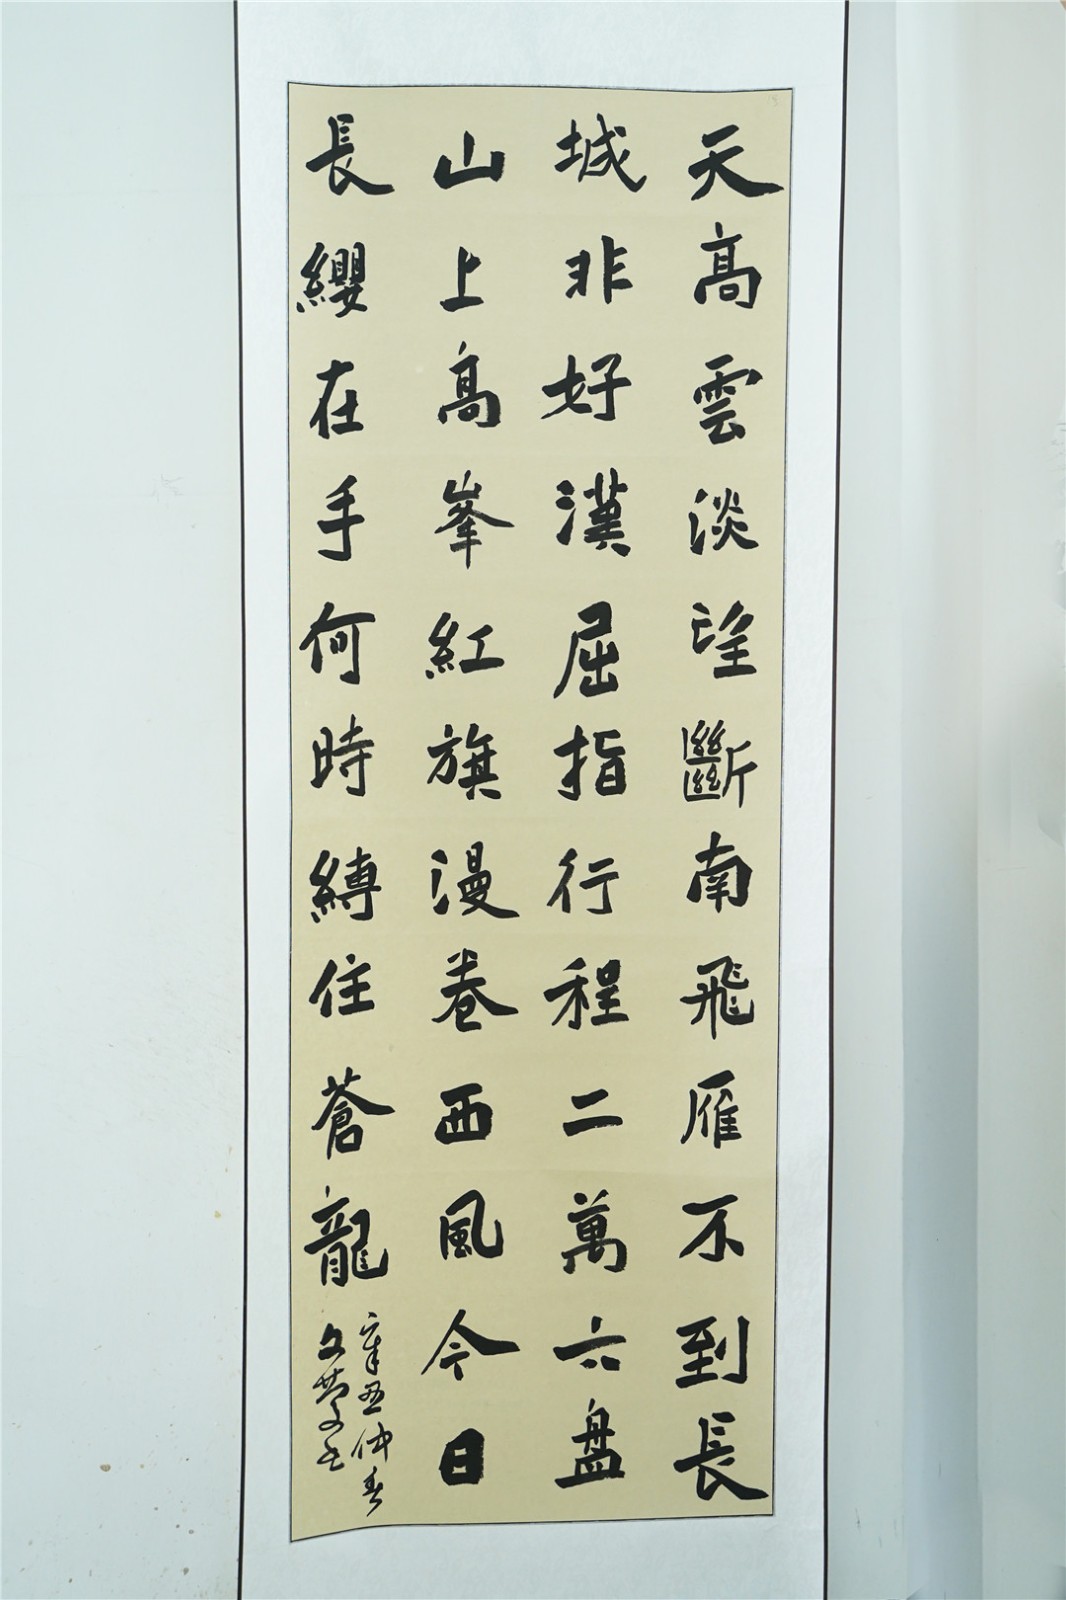 天高雲淡望斷南飛雁不到長
城非好漢屈指行程二萬六盤
山上高峯紅旗漫卷西風今日
長纓在手何時縛住蒼龍
辛丑仲春
文慶書